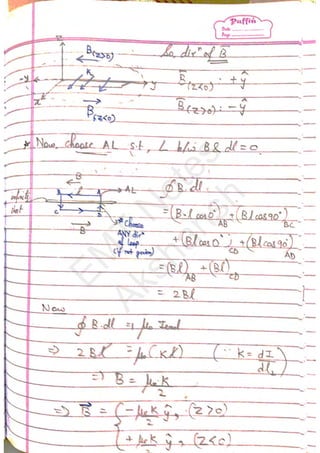 Puffin
Date
Page
So, dirⁿ of B̄
z
B(z>0)
K
-y
y
x
B̄(z<0) : +ŷ
B̄(z>0) : -ŷ
B(z<0)
* Now, choose AL s.t, ∠ b/w B & dl = 0.
B
l
AL
∮B̄.dl̄
infinite
sheet
C
B
B
* Choose
ANY dirⁿ
of loop
(if not given)
= (B·l cos0°)AB + (Bl cos90°)BC
+ (Bl cos0°)CD + (Bl cos90°)AD
= (Bl)AB + (Bl)CD
= 2Bl
Now
∮ B·dl = μ₀ Iencl
⇒ 2Bl = μ₀(Kl) (∵ K = dI/dl⊥)
⇒ B = μ₀K/2
⇒ B̄ = { -μ₀K/2 ŷ, (z>0)
+μ₀K/2 ŷ, (z<0)
EMT Notes